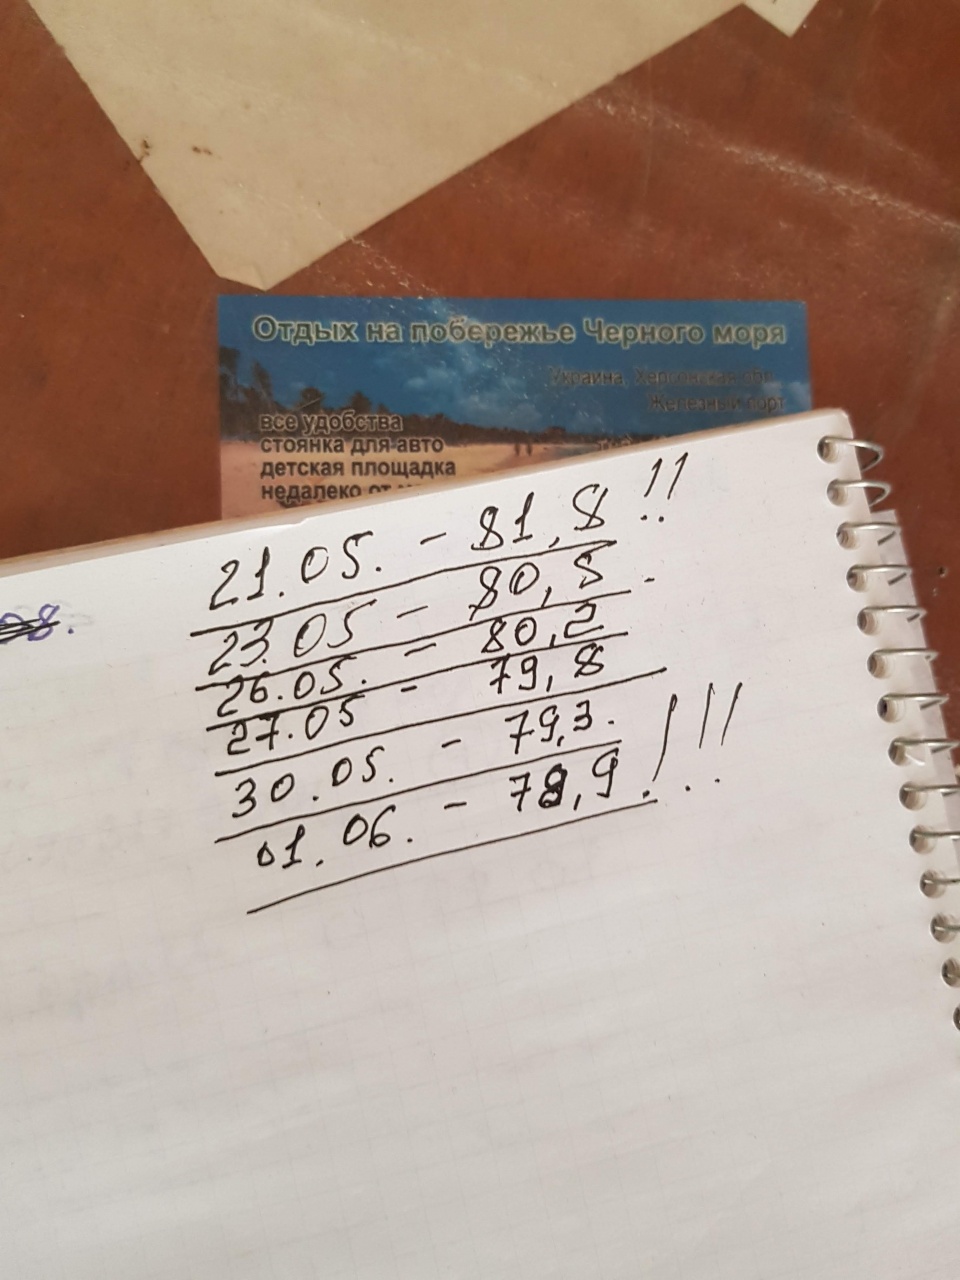 Отдых на побережье Черного моря
Украина, Херсонская обл.
Железный порт
все удобства
стоянка для авто
детская площадка
недалеко от
21.05. - 81,8!!
23.05 - 80,5.
26.05. - 80,2
27.05 - 79,8
30.05. - 79,3.
01.06. - 78,9!!!
08.